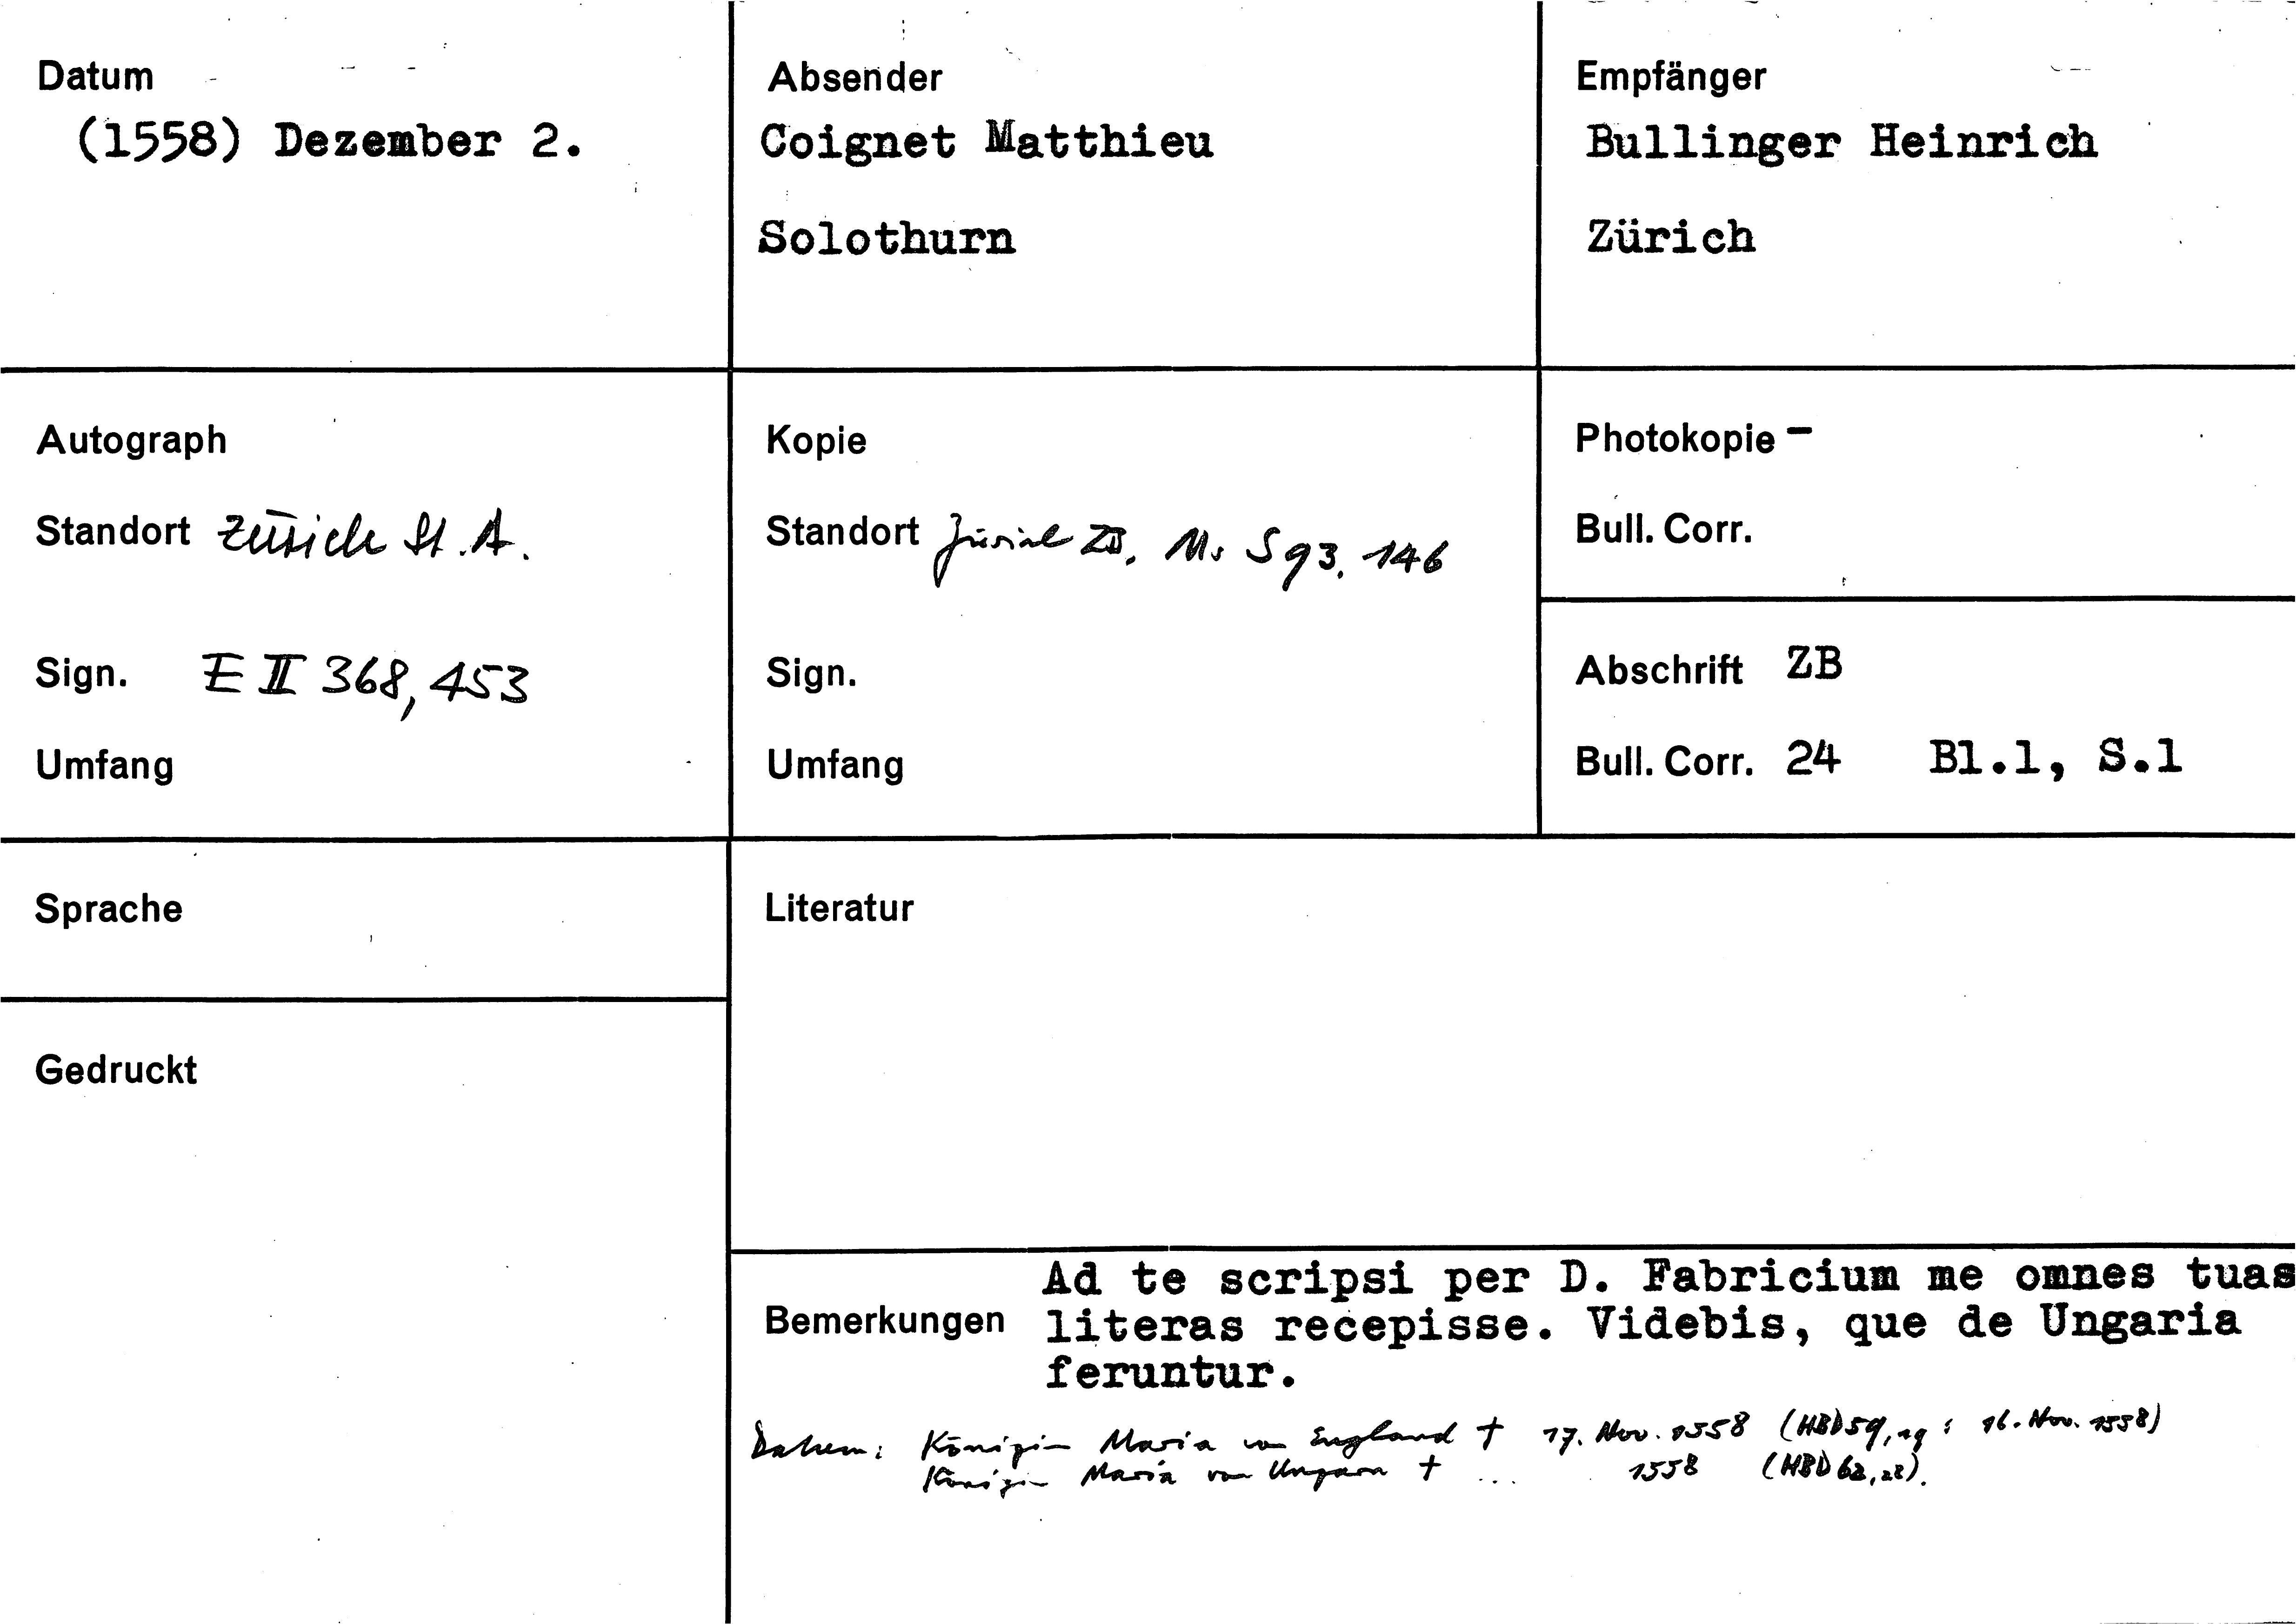 Datum
(1558) Dezember 2.
Absender
Coignet Matthieu
Solothurn
Empfänger
Bullinger Heinrich
Zürich
Autograph
Standort Zürich St.A.
Sign. E II 368, 453
Umfang
Kopie
Standort Zürich ZB, Ms S 93, 146
Sign.
Umfang
Photokopie -
Bull. Corr.
Abschrift ZB
Bull. Corr. 24 Bl.1, S.1
Sprache
Gedruckt
Literatur
Bemerkungen
Ad te scripsi per D. Fabricium me omnes tuas
literas recepisse. Videbis, que de Ungaria
feruntur.
Datum: Königin Maria von England † 17. Nov. 1558 (HBD 59,19: 16. Nov. 1558)
Königin Maria von Ungarn † ... 1558 (HBD 62,22).